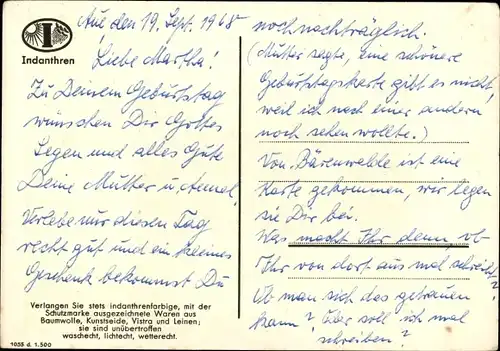 Aue den 19. Sept. 1968
Indanthren
Liebe Martha!
Zu Deinem Geburtstag
wünschen Dir Gottes
Segen und alles Gute
Deine Mutter u. 
Verlebe nur diesen Tag
recht gut und ein kleines
Geschenk bekommst Du
Verlangen Sie stets indanthrenfarbige, mit der
Schutzmarke ausgezeichnete Waren aus
Baumwolle, Kunstseide, Vistra und Leinen;
sie sind unübertroffen
waschecht, lichtecht, wetterecht.
1055 d. 1.500
noch nachträglich.
(Mutter sagte, eine schönere
Geburtstagskarte gibt es nicht,
weil ich nach einer andern
noch sehen wollte.)
Von Bärenwalde ist eine
Karte gekommen, wir legen
sie Dir bei.
Was macht Ihr denn ob
Ihr von dort aus mal schreibt?
Ob man sich das getrauen
kann? Oder soll ich mal
schreiben?